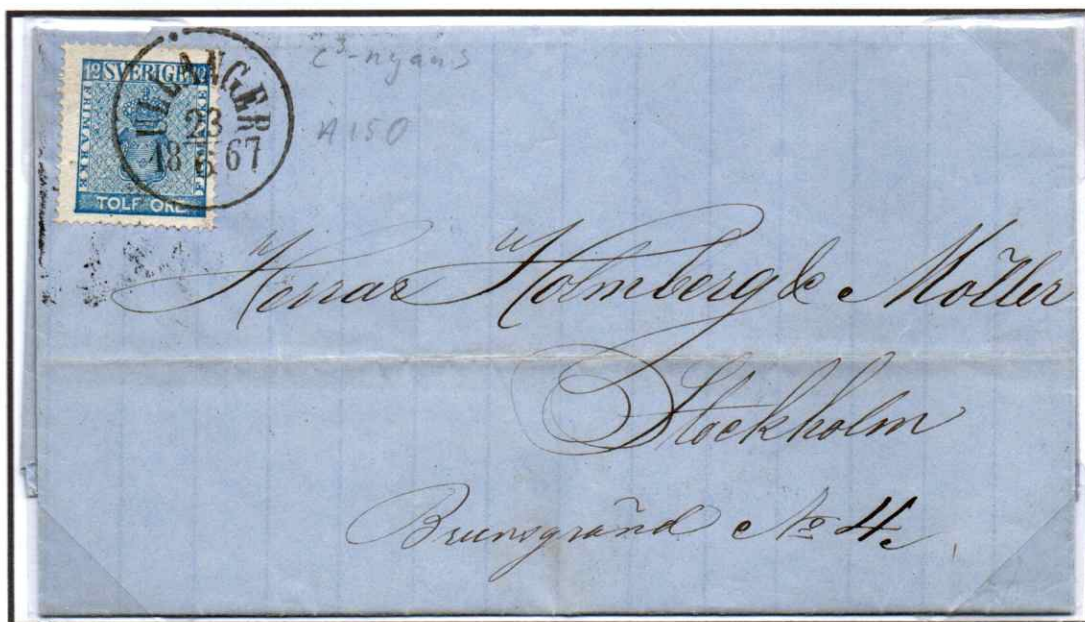 12 SVERIGE 12
FRIMÄRKE
TOLF ÖRE
ULLÅNGER
23
18 6 67
c3-nyans
A150
Herrar Holmberg & Möller
Stockholm
Brunsgränd No 4.